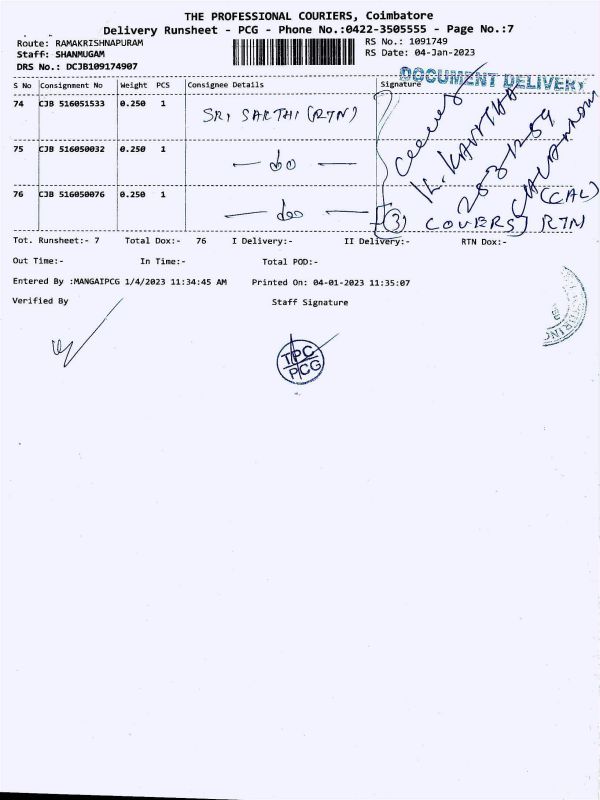 THE PROFESSIONAL COURIERS, Coimbatore
Delivery Runsheet - PCG - Phone No.:0422-3505555 - Page No.:7
Route: RAMAKRISHNAPURAM
RS No.: 1091749
Staff: SHANMUGAM
RS Date: 04-Jan-2023
DRS No.: DCJB109174907
DOCUMENT DELIVERY
S No Consignment No Weight PCS Consignee Details Signature
74 CJB 516051533 0.250 1 SRI SARTHI (RTN)
K. KAVITHA
75 CJB 516050032 0.250 1 — do —
76 CJB 516050076 0.250 1 — do —
(CAL)
[(3) COVERS] RTN
Tot. Runsheet:- 7 Total Dox:- 76 I Delivery:- II Delivery:- RTN Dox:-
Out Time:- In Time:- Total POD:-
Entered By :MANGAIPCG 1/4/2023 11:34:45 AM Printed On: 04-01-2023 11:35:07
Verified By Staff Signature
TPC
PCG